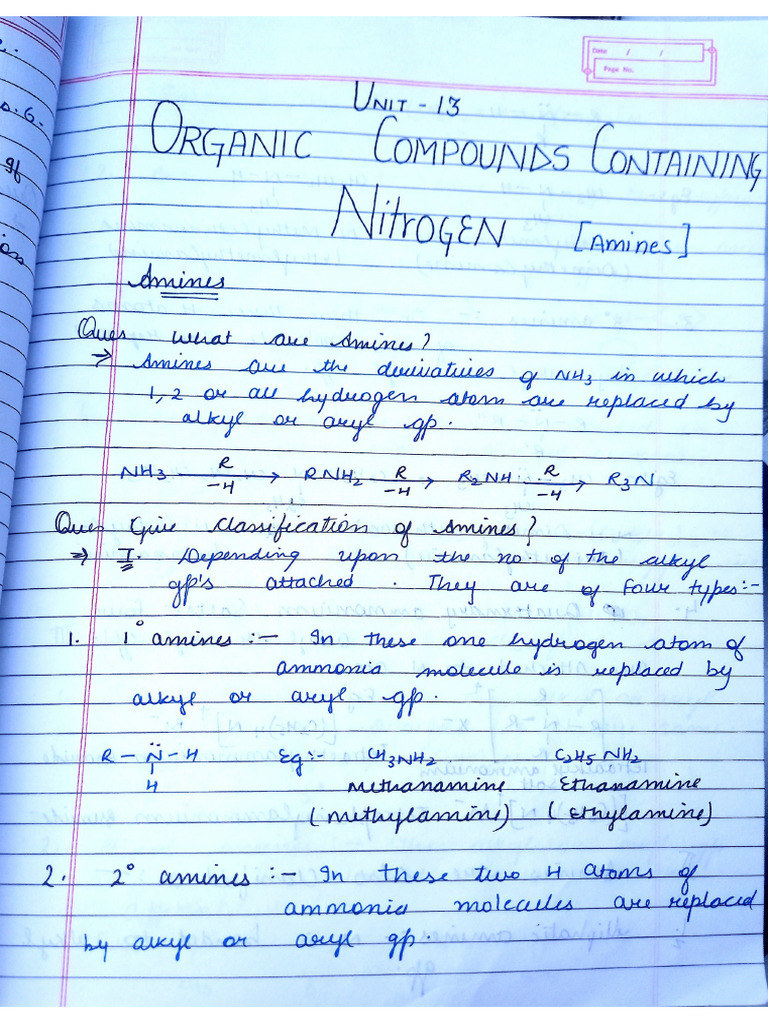 Date / /
Page No.
UNIT - 13
ORGANIC COMPOUNDS CONTAINING
NitroGEN [Amines]
Amines
Ques What are Amines?
→ Amines are the derivatives of NH3 in which
1, 2 or all hydrogen atom are replaced by
alkyl or aryl gp.
NH3 R/-H → RNH2 R/-H → R2NH R/-H → R3N
Ques Give Classification of Amines?
⇒ I. Depending upon the no. of the alkyl
gp's attached. They are of four types:-
1. 1° amines :- In these one hydrogen atom of
ammonia molecule is replaced by
alkyl or aryl gp.
R - N̈ - H Eg:- CH3NH2 C2H5NH2
H methanamine Ethanamine
(methylamine) (Ethylamine)
2. 2° amines :- In these two H atoms of
ammonia molecules are replaced
by alkyl or aryl gp.